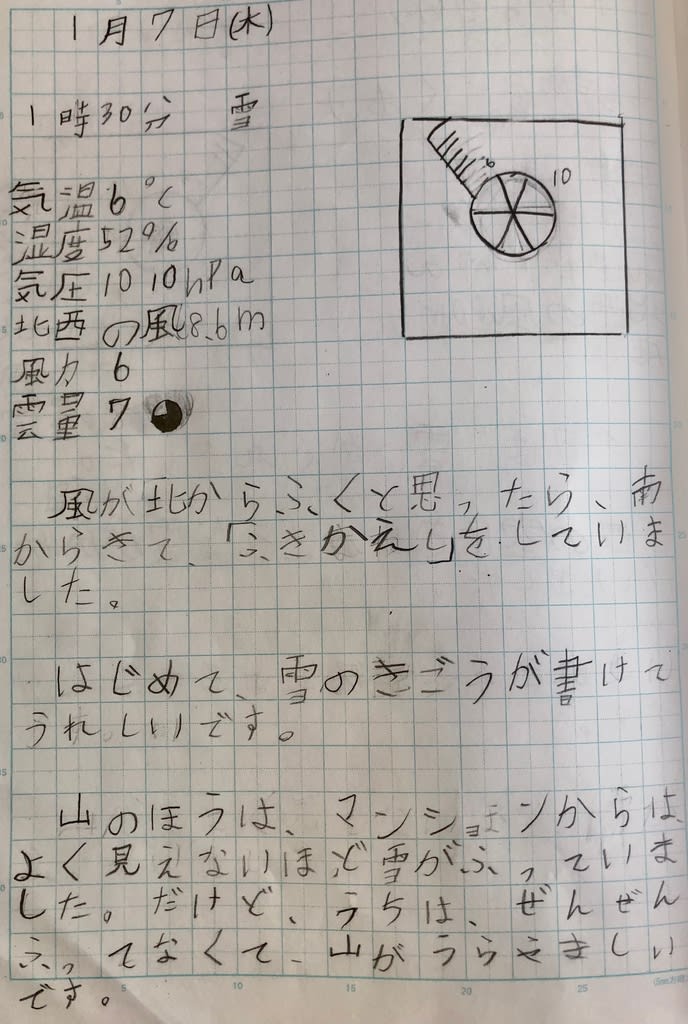 1月7日(木)
1時30分 雪
10
気温6℃
湿度52%
気圧1010hPa
北西の風8.6m
風力6
雲量7
風が北からふくと思ったら、南
からきて、「ふきかえし」をしていま
した。
はじめて、雪のきごうが書けて
うれしいです。
山のほうは、マンションからは、
よく見えないほど雪がふっていま
した。だけど、うちは、ぜんぜん
ふってなくて、山がうらやましい
です。
5
10
15
20
25